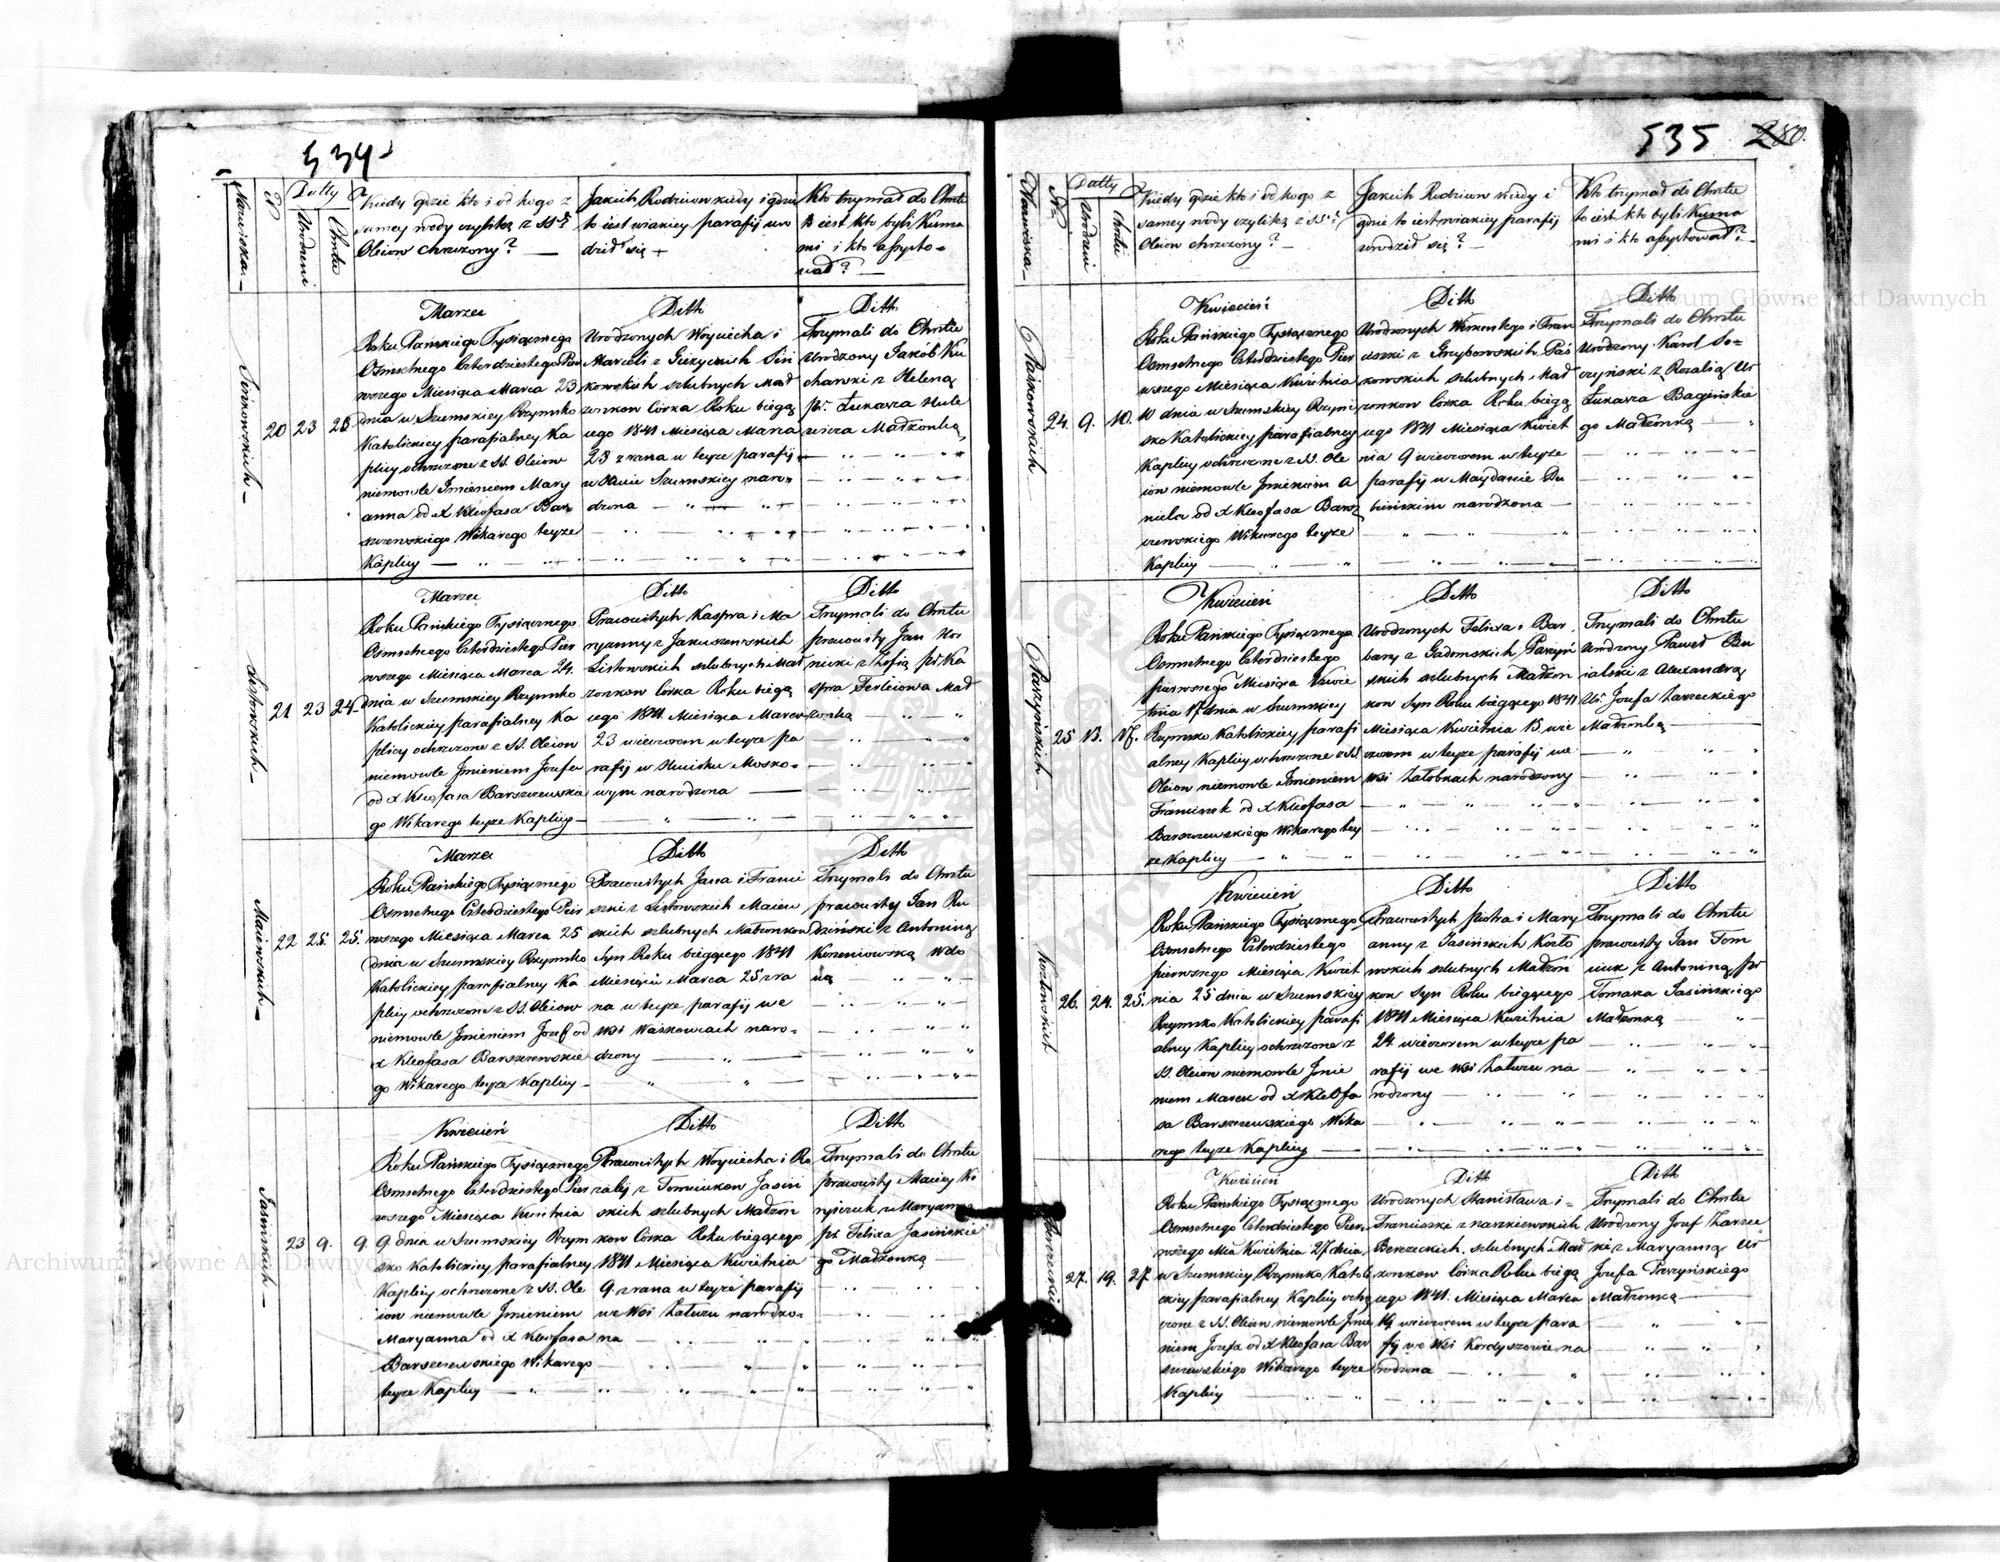 534
Nazwiska
N
Datty
Urodzeni
Chrztu
Kiedy gdzie kto i od kogo z
samey wody czyli też z SS.
Oleiow chrzczony?
Jakich Rodziców kiedy i gdzie
to iest wiakiey parafij uro
dził się
Kto trzymał do Chrztu
to iest kto byli Kuma
mi i kto assysto=
wał?
Sieńkowskich
20 23 23
Marzec
Roku Pańskiego Tysiącznego
Osmsetnego Czterdziestego Pier
wszego Miesiąca Marca 23
dnia w Szumskiey Rzymsko
Katolickiey parafialney Ka
plicy ochrzczone z SS. Oleiow
niemowle Jmieniem Mary
anna od X Kleofasa Bar
szczewskiego Wikarego teyze
Kaplicy
Ditto
Urodzonych Woyciecha i
Marceli z Giżyckich Sień
kowskich szlubnych Mał
zonkow Córka Roku biegą
cego 1841 Miesiąca Marca
23 z rana w teyze parafij
w Hucie Szumskiey naro=
dzona
Ditto
Trzymali do Chrztu
Urodzony Jakób Ku
charski z Heleną
pr. Łukasza Hule
wicza Małżonką
Listowskich
21 23 24
Marzec
Roku Pańskiego Tysiącznego
Osmsetnego Czterdziestego Pier
wszego Miesiąca Marca 24
dnia w Szumskiey Rzymsko
Katolickiey parafialney Ka
plicy ochrzczone z SS. Oleiow
niemowle Jmieniem Jozefa
od X Kleofasa Barszczewskie
go Wikarego teyze Kaplicy
Ditto
Pracowitych Kaspra i Ma
ryanny z Jakuszewskich
Listowskich szlubnych Mał
zonkow Córka Roku biegą
cego 1841 Miesiąca Marca
23 wieczorem w teyze pa
rafij w Hucisku Mosko=
wym narodzona
Ditto
Trzymali do Chrztu
pracowity Jan Kor
nicki z Zofią pr. Ka
spra Ferleiowa Mał
zonką
Maiewskich
22 25. 25.
Marzec
Roku Pańskiego Tysiącznego
Osmsetnego Czterdziestego Pier
wszego Miesiąca Marca 25
dnia w Szumskiey Rzymsko
Katolickiey parafialney Ka
plicy ochrzczone z SS. Oleiow
niemowle Jmieniem Jozef od
X Kleofasa Barszczewskie
go Wikarego teyze Kaplicy
Ditto
Pracowitych Jana i Franci
szki z Listowskich Maiew
skich szlubnych Małzonkow
Syn Roku biegącego 1841
Miesiąca Marca 25 z ra
na w teyze parafij we
Wsi Waśkowcach naro=
dzony
Ditto
Trzymali do Chrztu
pracowity Jan Ru
dziński z Antoniną
Korzeniowską Wdo
wą
Jasińskich
23 9. 9.
Kwiecień
Roku Pańskiego Tysiącznego
Osmsetnego Czterdziestego Pier
wszego Miesiąca Kwietnia
9 dnia w Szumskiey Rzym
sko Katolickiey parafialney
Kaplicy ochrzczone z SS. Ole
iow niemowle Jmieniem
Maryanna od X Kleofasa
Barszczewskiego Wikarego
teyze Kaplicy
Ditto
Pracowitych Woyciecha i Ro
zalij z Tomiukow Jasiń
skich szlubnych Małzon
kow Córka Roku biegącego
1841 Miesiąca Kwietnia
9 z rana w teyze parafij
we Wsi Zaturzu narodzo=
na
Ditto
Trzymali do Chrztu
pracowity Maciey Ki
ryszczuk z Maryanną
pr. Felixa Jasińskie
go Małzonką
535 280.
Nazwiska
N
Datty
Urodzeni
Chrztu
Kiedy gdzie kto i od kogo z
samey wody czyli też z SS.
Oleiow chrzczony?
Jakich Rodziców kiedy i
gdzie to iest wiakiey parafij
urodził się?
Kto trzymał do Chrztu
to iest kto byli Kuma
mi i kto assystował?
Paśkowskich
24. 9. 10.
Kwiecień
Roku Pańskiego Tysiącznego
Osmsetnego Czterdziestego Pier
wszego Miesiąca Kwietnia
10 dnia w Szumskiey Rzym
sko Katolickiey parafialney
Kaplicy ochrzczone z SS. Ole
iow niemowle Jmieniem A
niela od X Kleofasa Barsz
czewskiego Wikarego teyze
Kaplicy
Ditto
Urodzonych Wincentego i Fran
ciszki z Grzybowskich Paś
kowskich szlubnych Mał
zonkow Córka Roku biegą
cego 1841 Miesiąca Kwiet
nia 9 wieczorem w teyze
parafij w Maydanie Du
bińskim narodzona
Ditto
Trzymali do Chrztu
Urodzony Karol So=
czyński z Rozalią Ur
Łukasza Bagińskie
go Małzonką
Parzyńskich
25 13. 17.
Kwiecień
Roku Pańskiego Tysiącznego
Osmsetnego Czterdziestego
pierwszego Miesiąca Kwie
tnia 17 dnia w Szumskiey
Rzymsko Katolickiey parafi
alney Kaplicy ochrzczone z SS
Oleiow niemowle Jmieniem
Franciszek od X Kleofasa
Barszczewskiego Wikarego tey
ze Kaplicy
Ditto
Urodzonych Felixa i Bar
bary z Gadomskich Parzyń
skich szlubnych Małzon
kow Syn Roku biegącego 1841
Miesiąca Kwietnia 13 wie
czorem w teyze parafij we
Wsi Załobkach narodzony
Ditto
Trzymali do Chrztu
Urodzony Paweł Bu
ialski z Alexandrą
Ur. Jozefa Zarzeckiego
Małzonką
Kozłowskich
26. 24. 25.
Kwiecień
Roku Pańskiego Tysiącznego
Osmsetnego Czterdziestego
pierwszego Miesiąca Kwiet
nia 25 dnia w Szumskiey
Rzymsko Katolickiey parafi
alney Kaplicy ochrzczone z
SS. Oleiow niemowle Jmie
niem Marek od X Kleofa
sa Barszczewskiego Wika
rego teyze Kaplicy
Ditto
Pracowitych Piotra i Mary
anny z Jasińskich Kozło
wskich szlubnych Małzon
kow Syn Roku biegącego
1841 Miesiąca Kwietnia
24 wieczorem w teyze pa
rafij we Wsi Zaturzu na
rodzony
Ditto
Trzymali do Chrztu
pracowity Jan Tom
iuk z Antoniną pr
Tomasza Jasińskiego
Małzonką
27. 19. 27
Kwiecień
Roku Pańskiego Tysiącznego
Osmsetnego Czterdziestego Pier
wszego Mca Kwietnia 27 dnia
w Szumskiey Rzymsko Katoli
ckiey parafialney Kaplicy ochrz
czone z SS. Oleiow niemowle Jmie
niem Jozefa od X Kleofasa Bar
szczewskiego Wikarego teyze
Kaplicy
Ditto
Urodzonych Stanisława i=
Franciszki z Raszkiewskich
Berezeckich szlubnych Mał
zonkow Córka Roku biegą
cego 1841. Miesiąca Marca
19 wieczorem w teyze para
fij we Wsi Kordyszowie na
rodzona
Ditto
Trzymali do Chrztu
Urodzony Jozef Zarzec
ki z Maryanną Ur
Jozefa Parzyńskiego
Małzonką
Archiwum Główne Akt Dawnych
Archiwum Główne Akt Dawnych